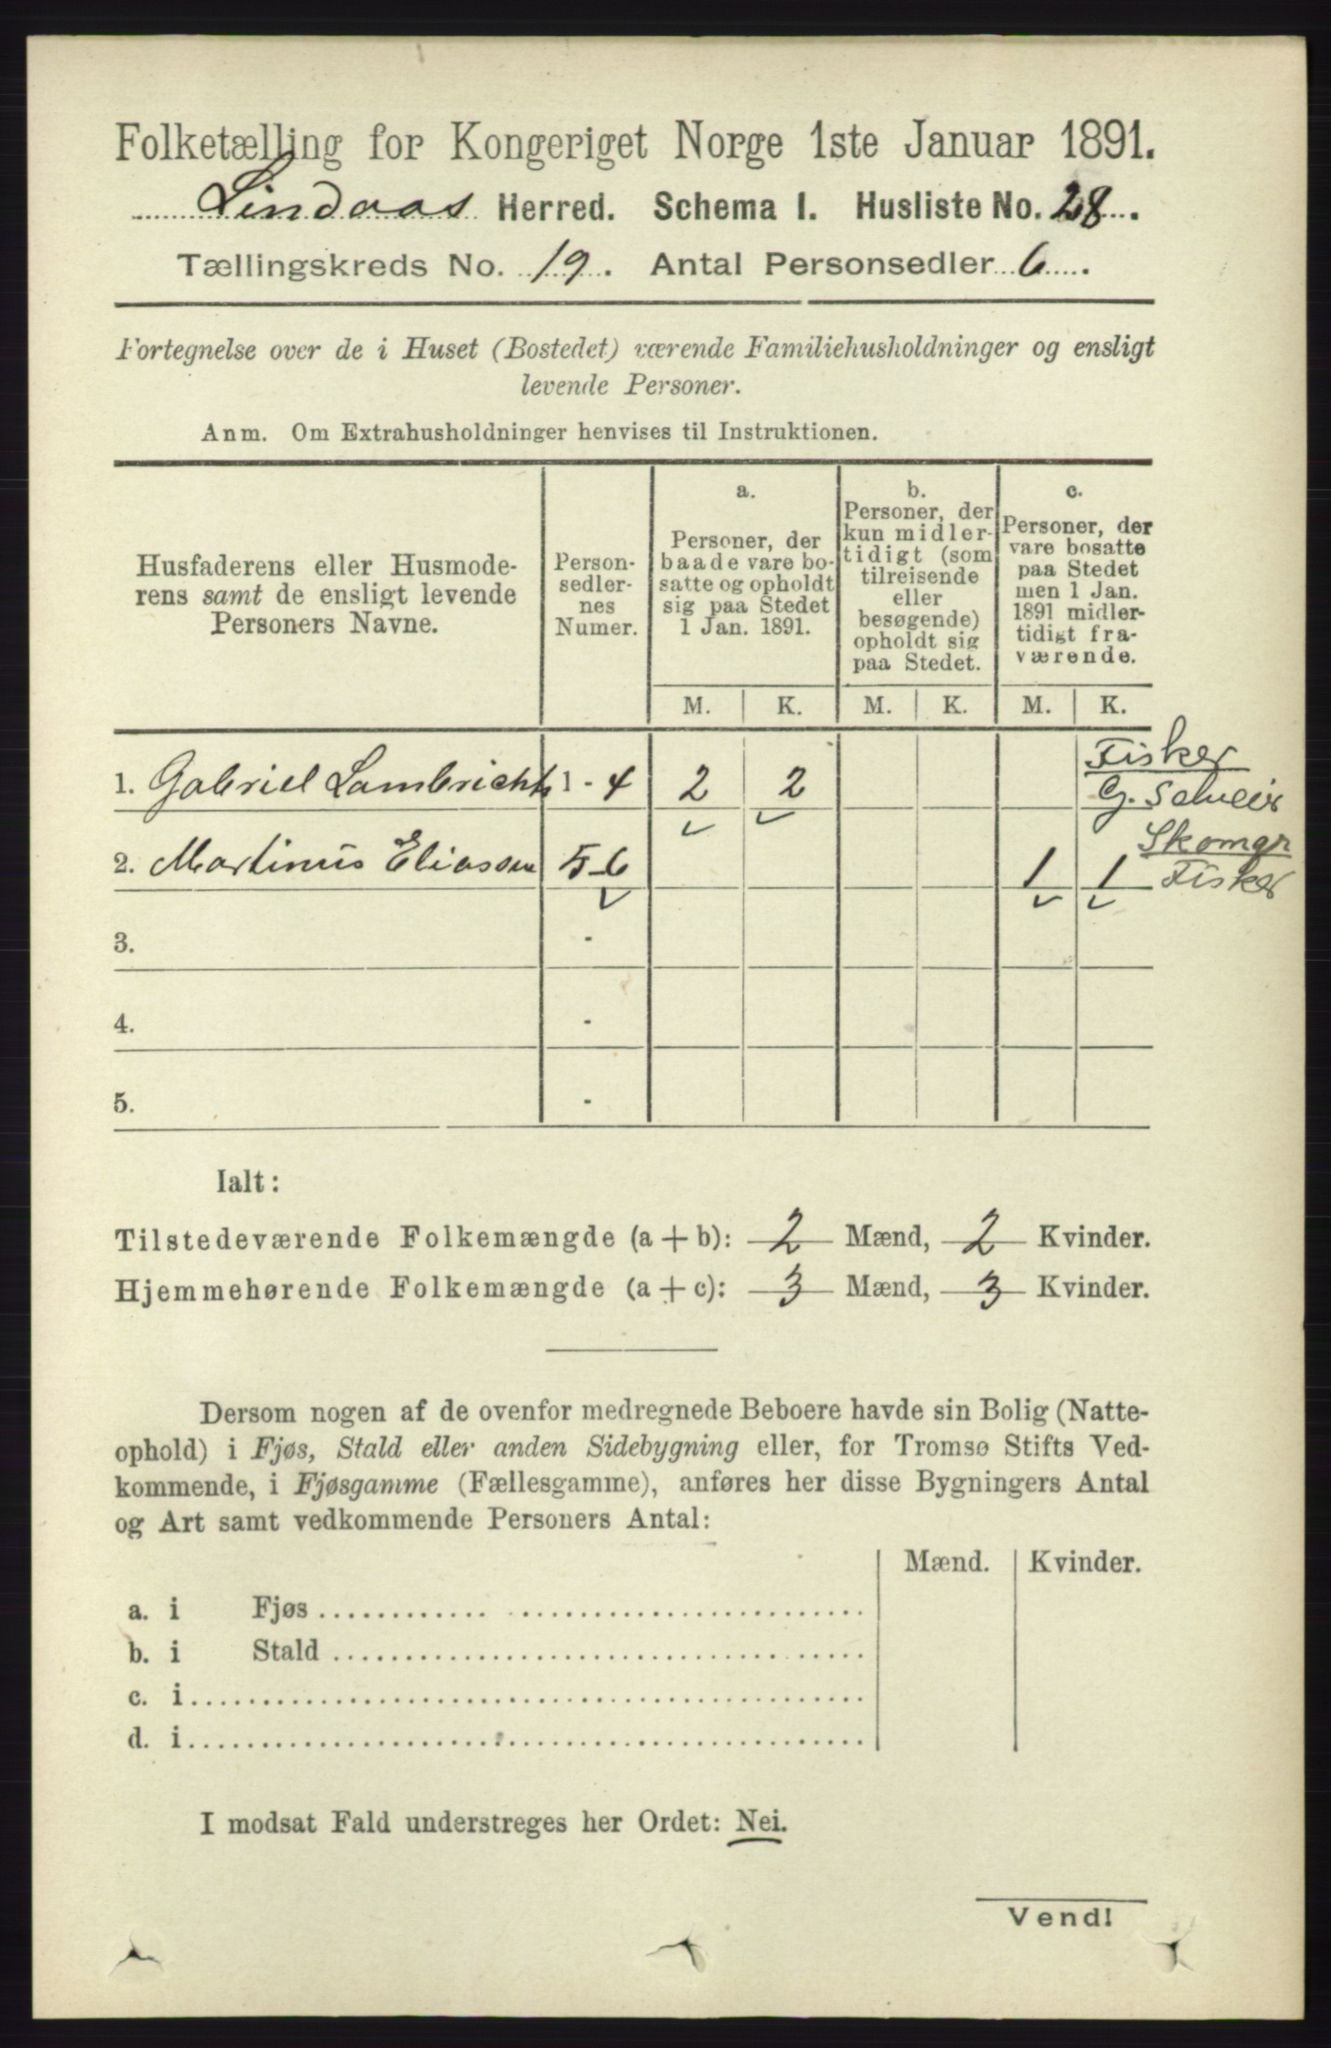 Folketælling for Kongeriget Norge 1ste Januar 1891.
Lindaas Herred. Schema I. Husliste No. 28.
Tællingskreds No. 19. Antal Personsedler 6.
Fortegnelse over de i Huset (Bostedet) værende Familiehusholdninger og ensligt
levende Personer.
Anm. Om Extrahusholdninger henvises til Instruktionen.
Husfaderens eller Husmode-
rens samt de ensligt levende
Personers Navne.
Person-
sedler-
nes
Numer.
a.
Personer, der
baade vare bo-
satte og opholdt
sig paa Stedet
1 Jan. 1891.
b.
Personer, der
kun midler-
tidigt (som
tilreisende
eller
besøgende)
opholdt sig
paa Stedet.
c.
Personer, der
vare bosatte
paa Stedet
men 1 Jan.
1891 midler-
tidigt fra-
værende.
M. K. M. K. M. K.
Fisker
1. Gabriel Lambrichts 1 - 4 2 2 G.
Skomgr
2. Martinus Eliassen 5-6 1 1 Fisker
3. -
4. -
5. -
Ialt:
Tilstedeværende Folkemængde (a + b): 2 Mænd, 2 Kvinder.
Hjemmehørende Folkemængde (a + c): 3 Mænd, 3 Kvinder.
Dersom nogen af de ovenfor medregnede Beboere havde sin Bolig (Natte-
ophold) i Fjøs, Stald eller anden Sidebygning eller, for Tromsø Stifts Ved-
kommende, i Fjøsgamme (Fællesgamme), anføres her disse Bygningers Antal
og Art samt vedkommende Personers Antal:
Mænd. Kvinder.
a. i Fjøs
b. i Stald
c. i
d. i
I modsat Fald understreges her Ordet: Nei.
Vend!